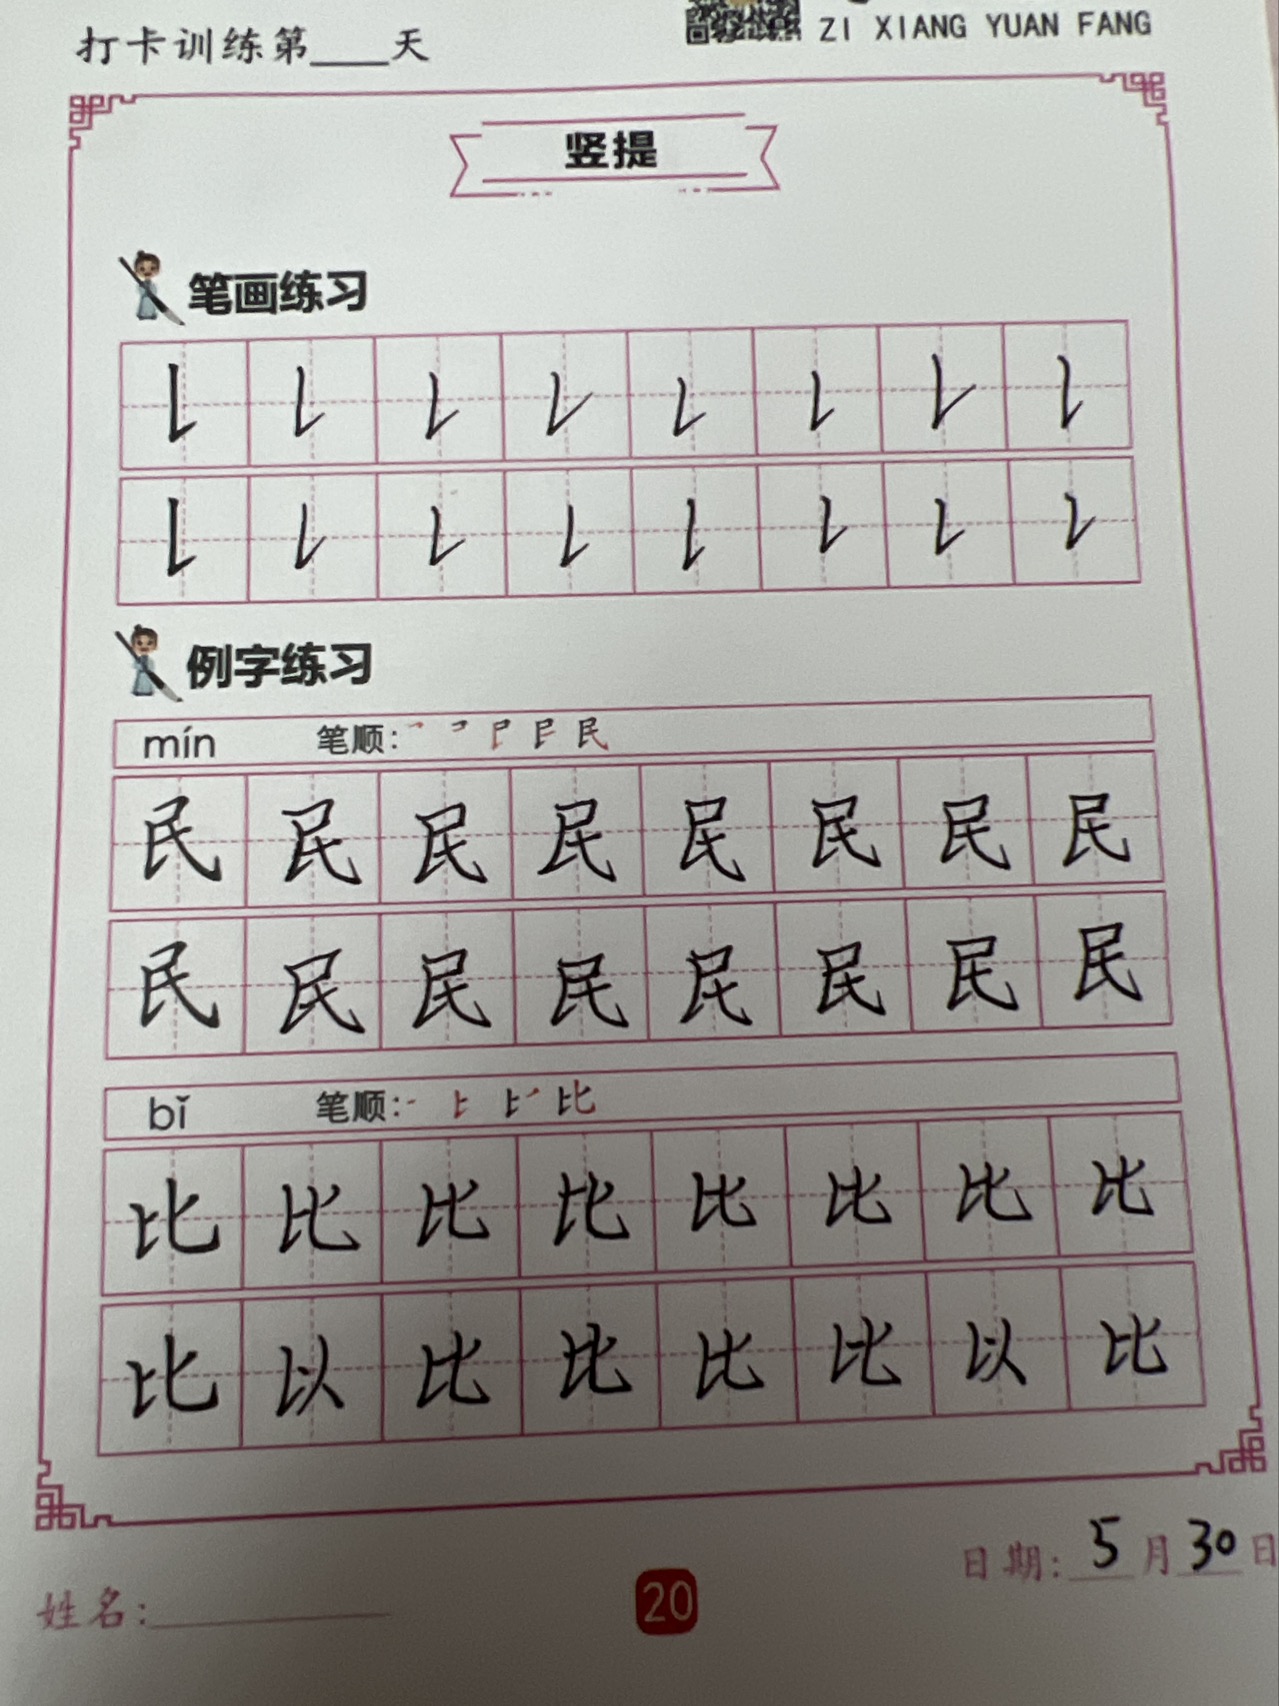 打卡训练第____天
ZI XIANG YUAN FANG
竖提
笔画练习
例字练习
mín 笔顺:
民 民 民 民 民 民 民 民
民 民 民 民 民 民 民 民
bǐ 笔顺:
比 比 比 比 比 比 比 比
比 以 比 比 比 比 以 比
日期: 5 月 30 日
姓名:
20